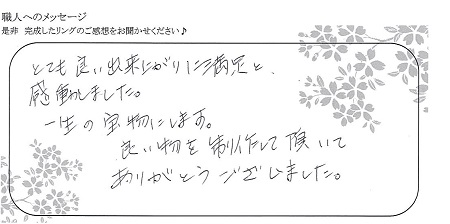 職人へのメッセージ
是非 完成したリングのご感想をお聞かせください♪
とても良い出来上がりに満足と、
感動しました。
一生の宝物にします。
良い物を制作して頂いて
ありがとうございました。